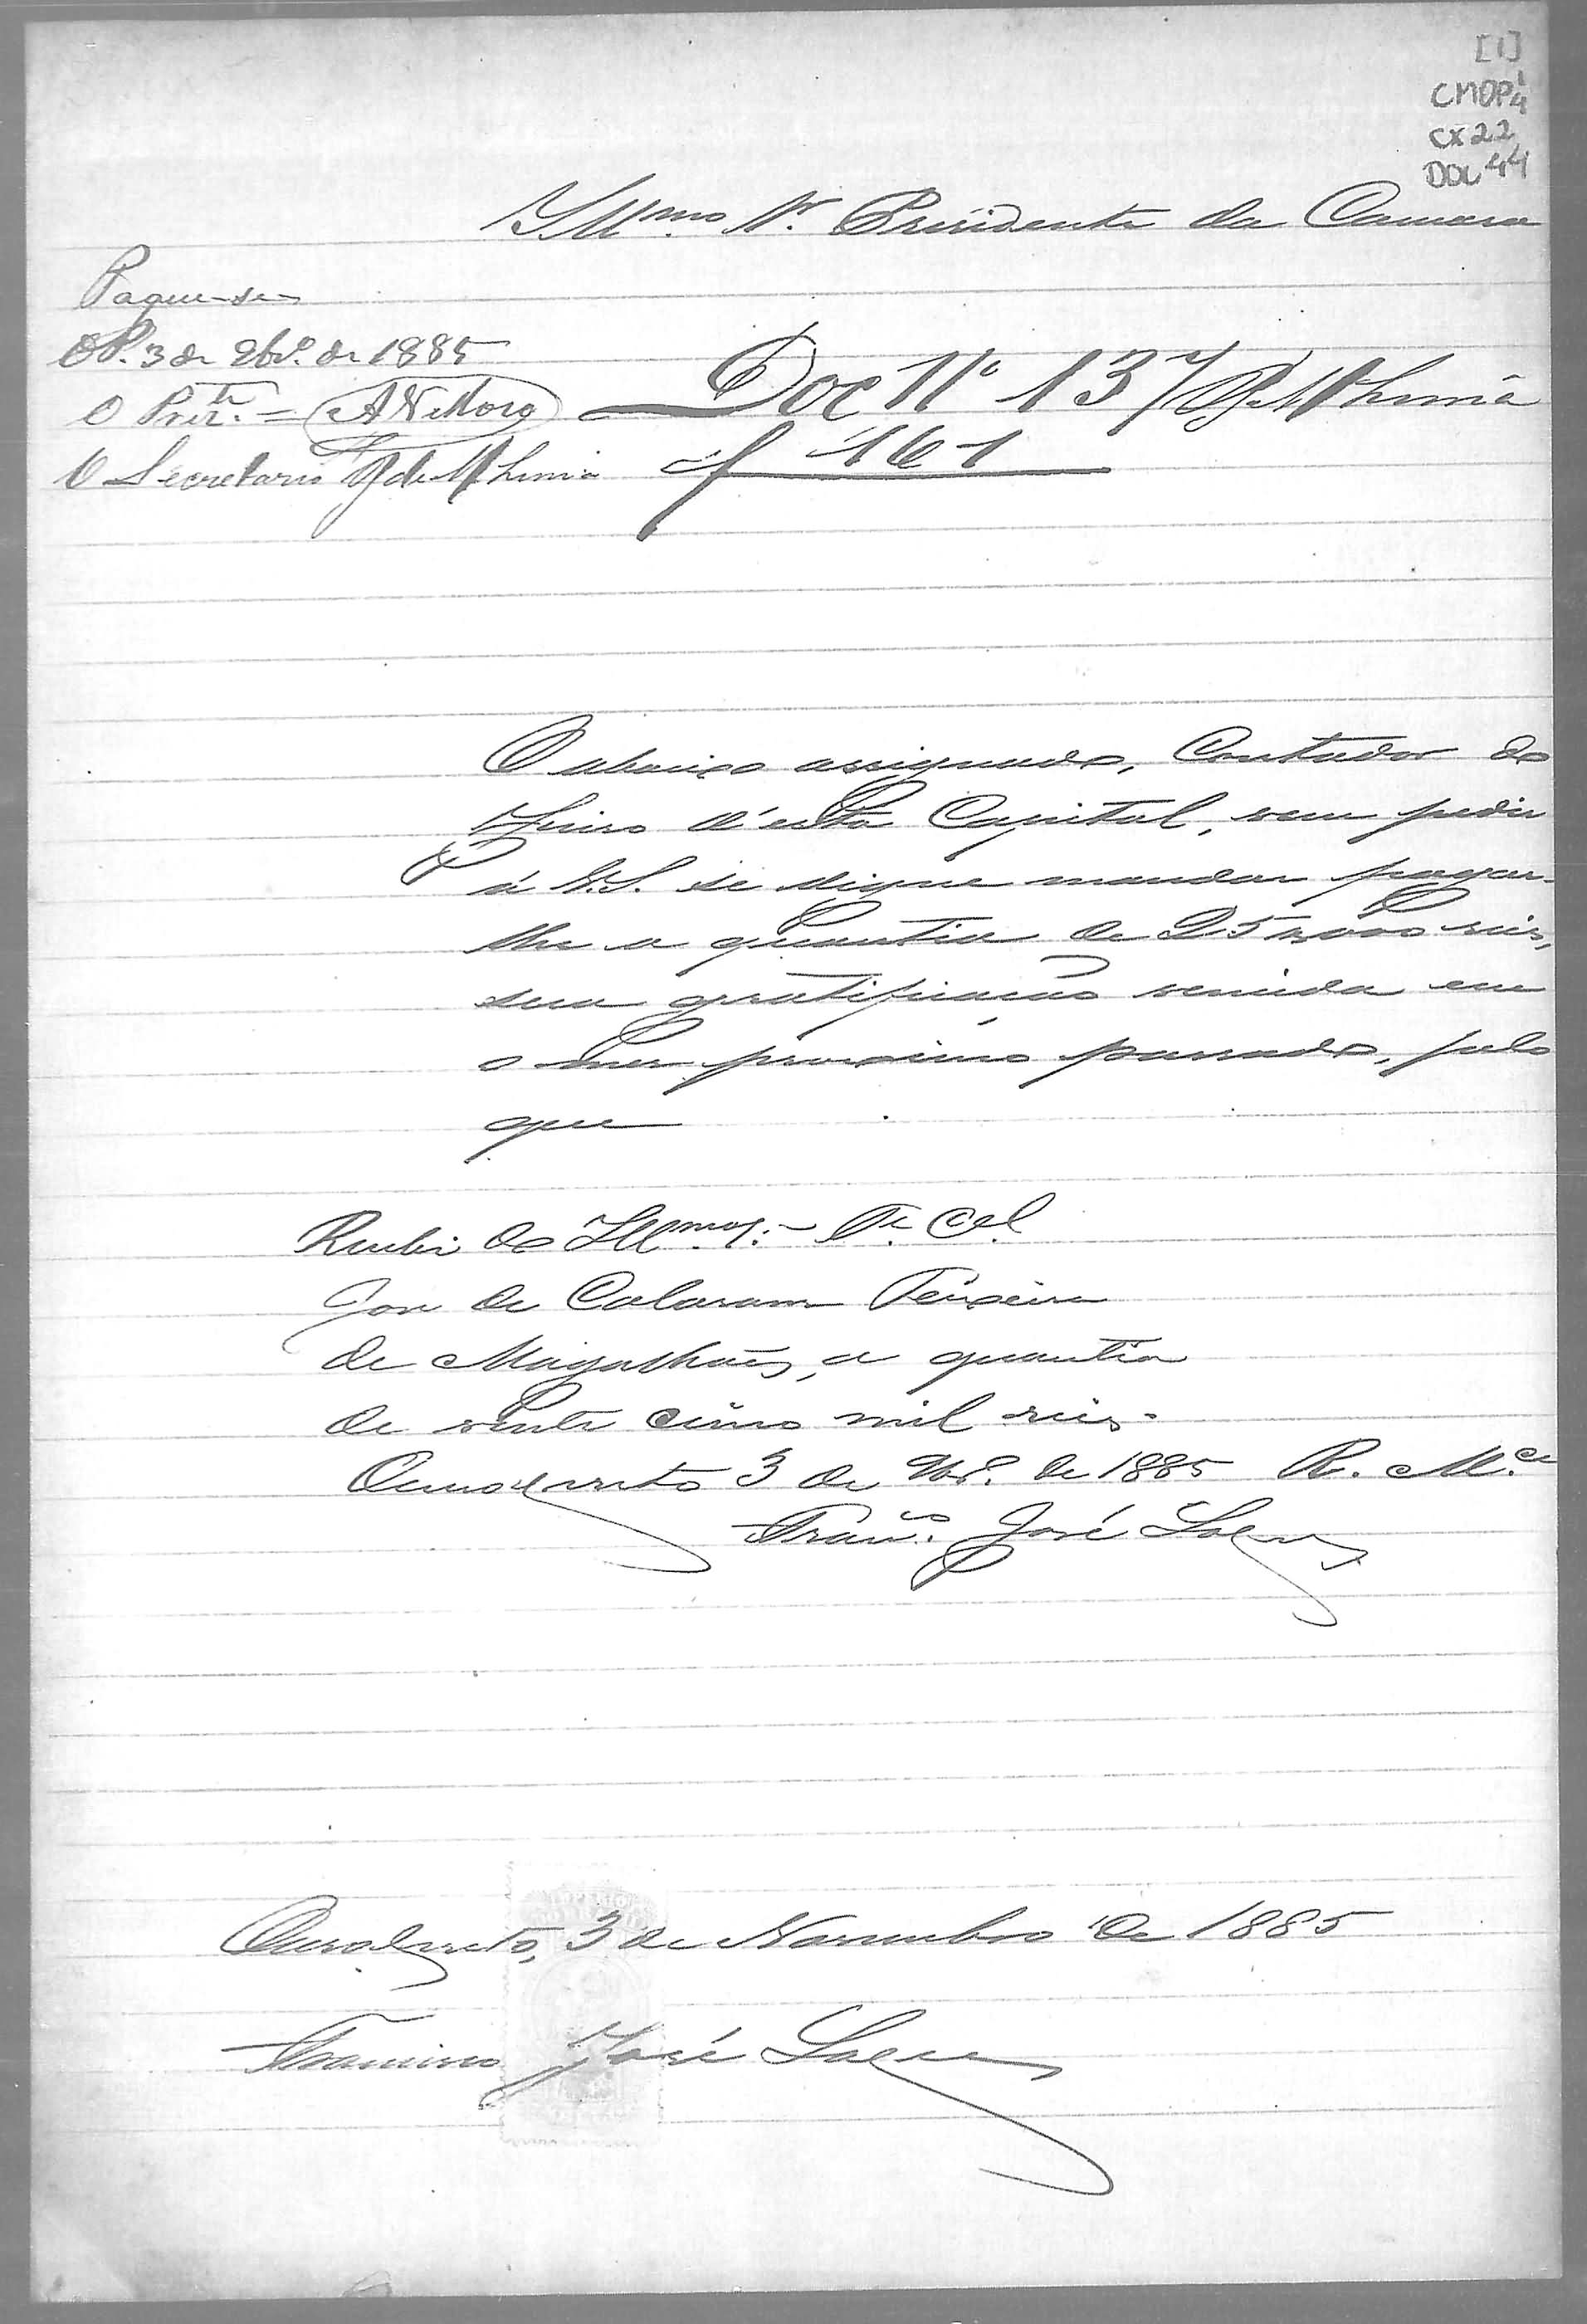 [1]
CMOP 1/4
CX 22
DOC 44
Illmo Sr. Presidente da Camara
Pague-se
OP. 3 de 9br.º de 1885
O Prez.te =
Doc Nº 137
O Secretario
f 161
O abaixo assignado, Contador do
Juizo d'esta Capital, vem pedir
á V.S. se digne mandar pagar-
lhe a quantia de 25$000 reis,
sua gratificação vencida em
o mez proximo passado, pelo
que
Recebi do Illmo Sr. Te. Cel.
José de Calasans Teixeira
de Magalhães, a quantia
de vinte cinco mil reis.
Ouro preto 3 de 9br.º de 1885 R. M.ce
Franco. José Lopes
Ouro preto, 3 de Novembro de 1885
Francisco José Lopes